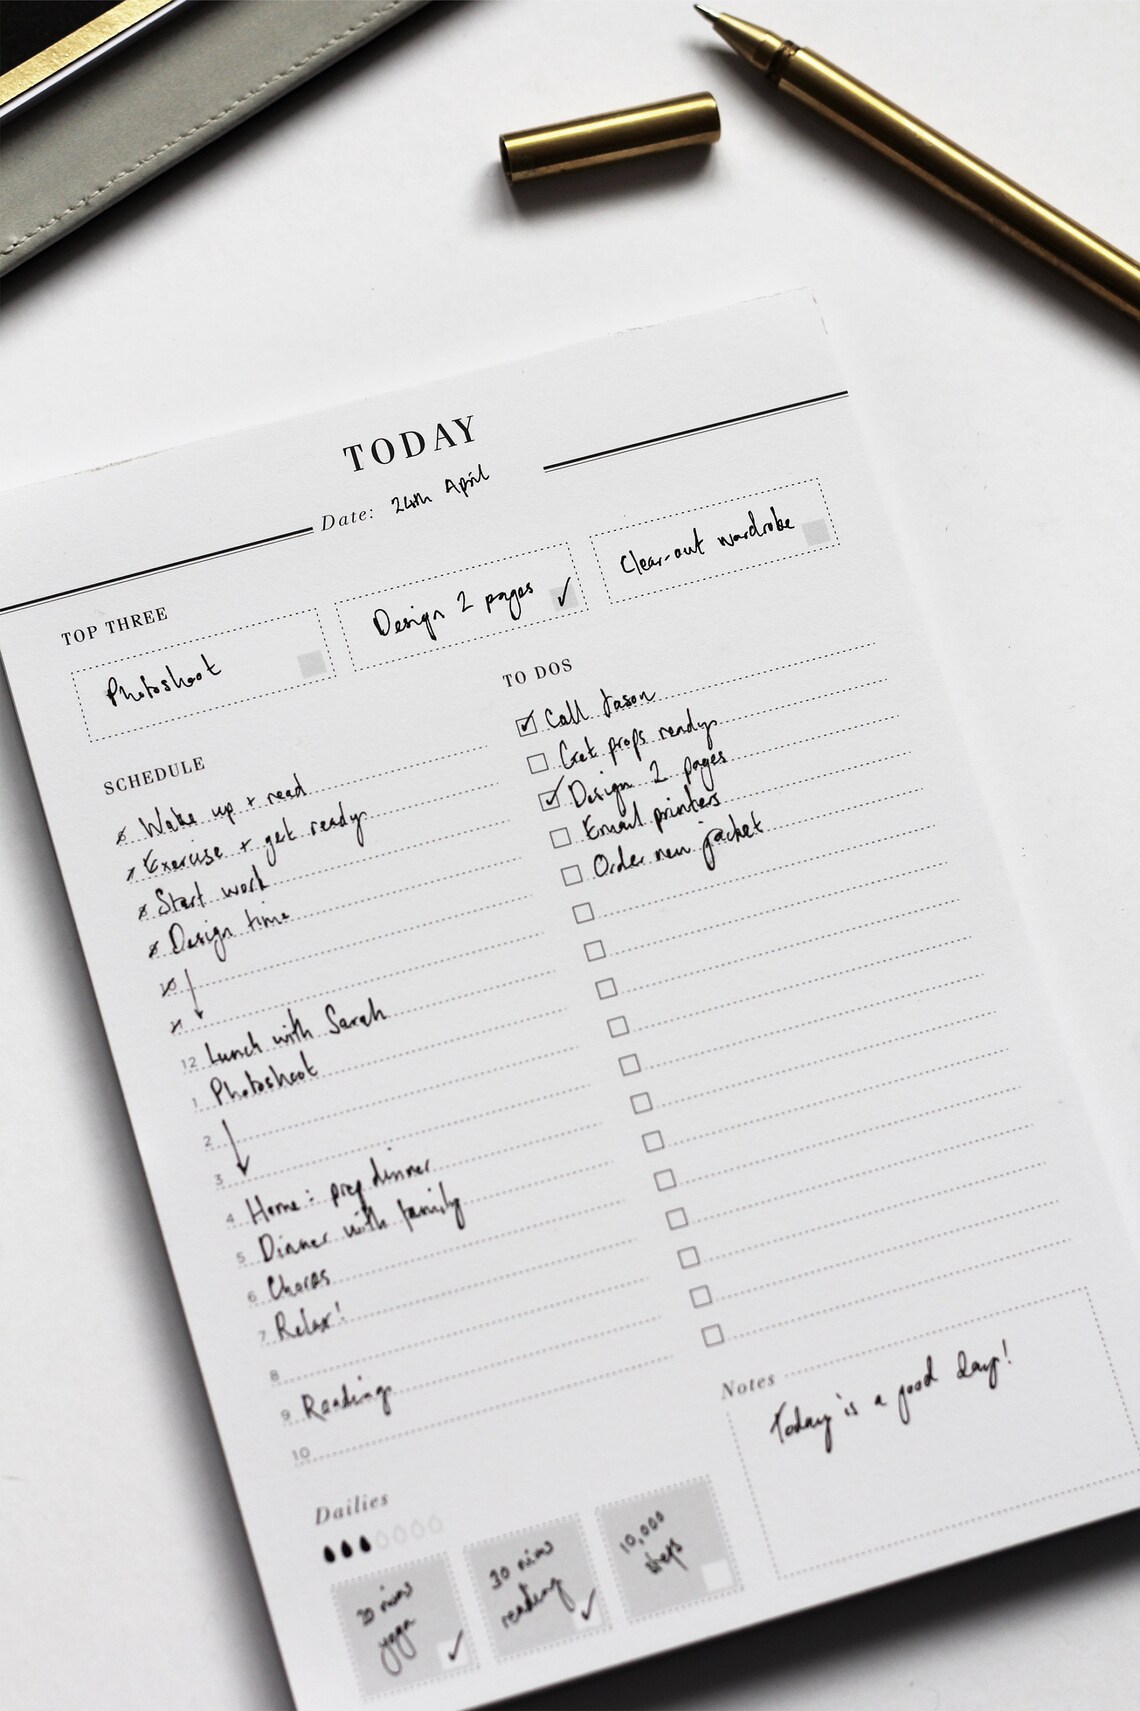 TODAY
Date: 24th April
TOP THREE
Photoshoot
Design 2 pages ✓
Clear-out wardrobe
SCHEDULE
6 Wake up + read
7 Exercise + get ready
8 Start work
9 Design time
10
11
12 Lunch with Sarah
1 Photoshoot
2
3
4 Home: prep dinner
5 Dinner with family
6 Chores
7 Relax!
8
9 Reading
10
TO DOS
Call Jason
Get props ready
Design 2 pages
Email printers
Order new jacket
Notes
Today is a good day!
Dailies
mins
yoga
mins
reading
10,000
steps